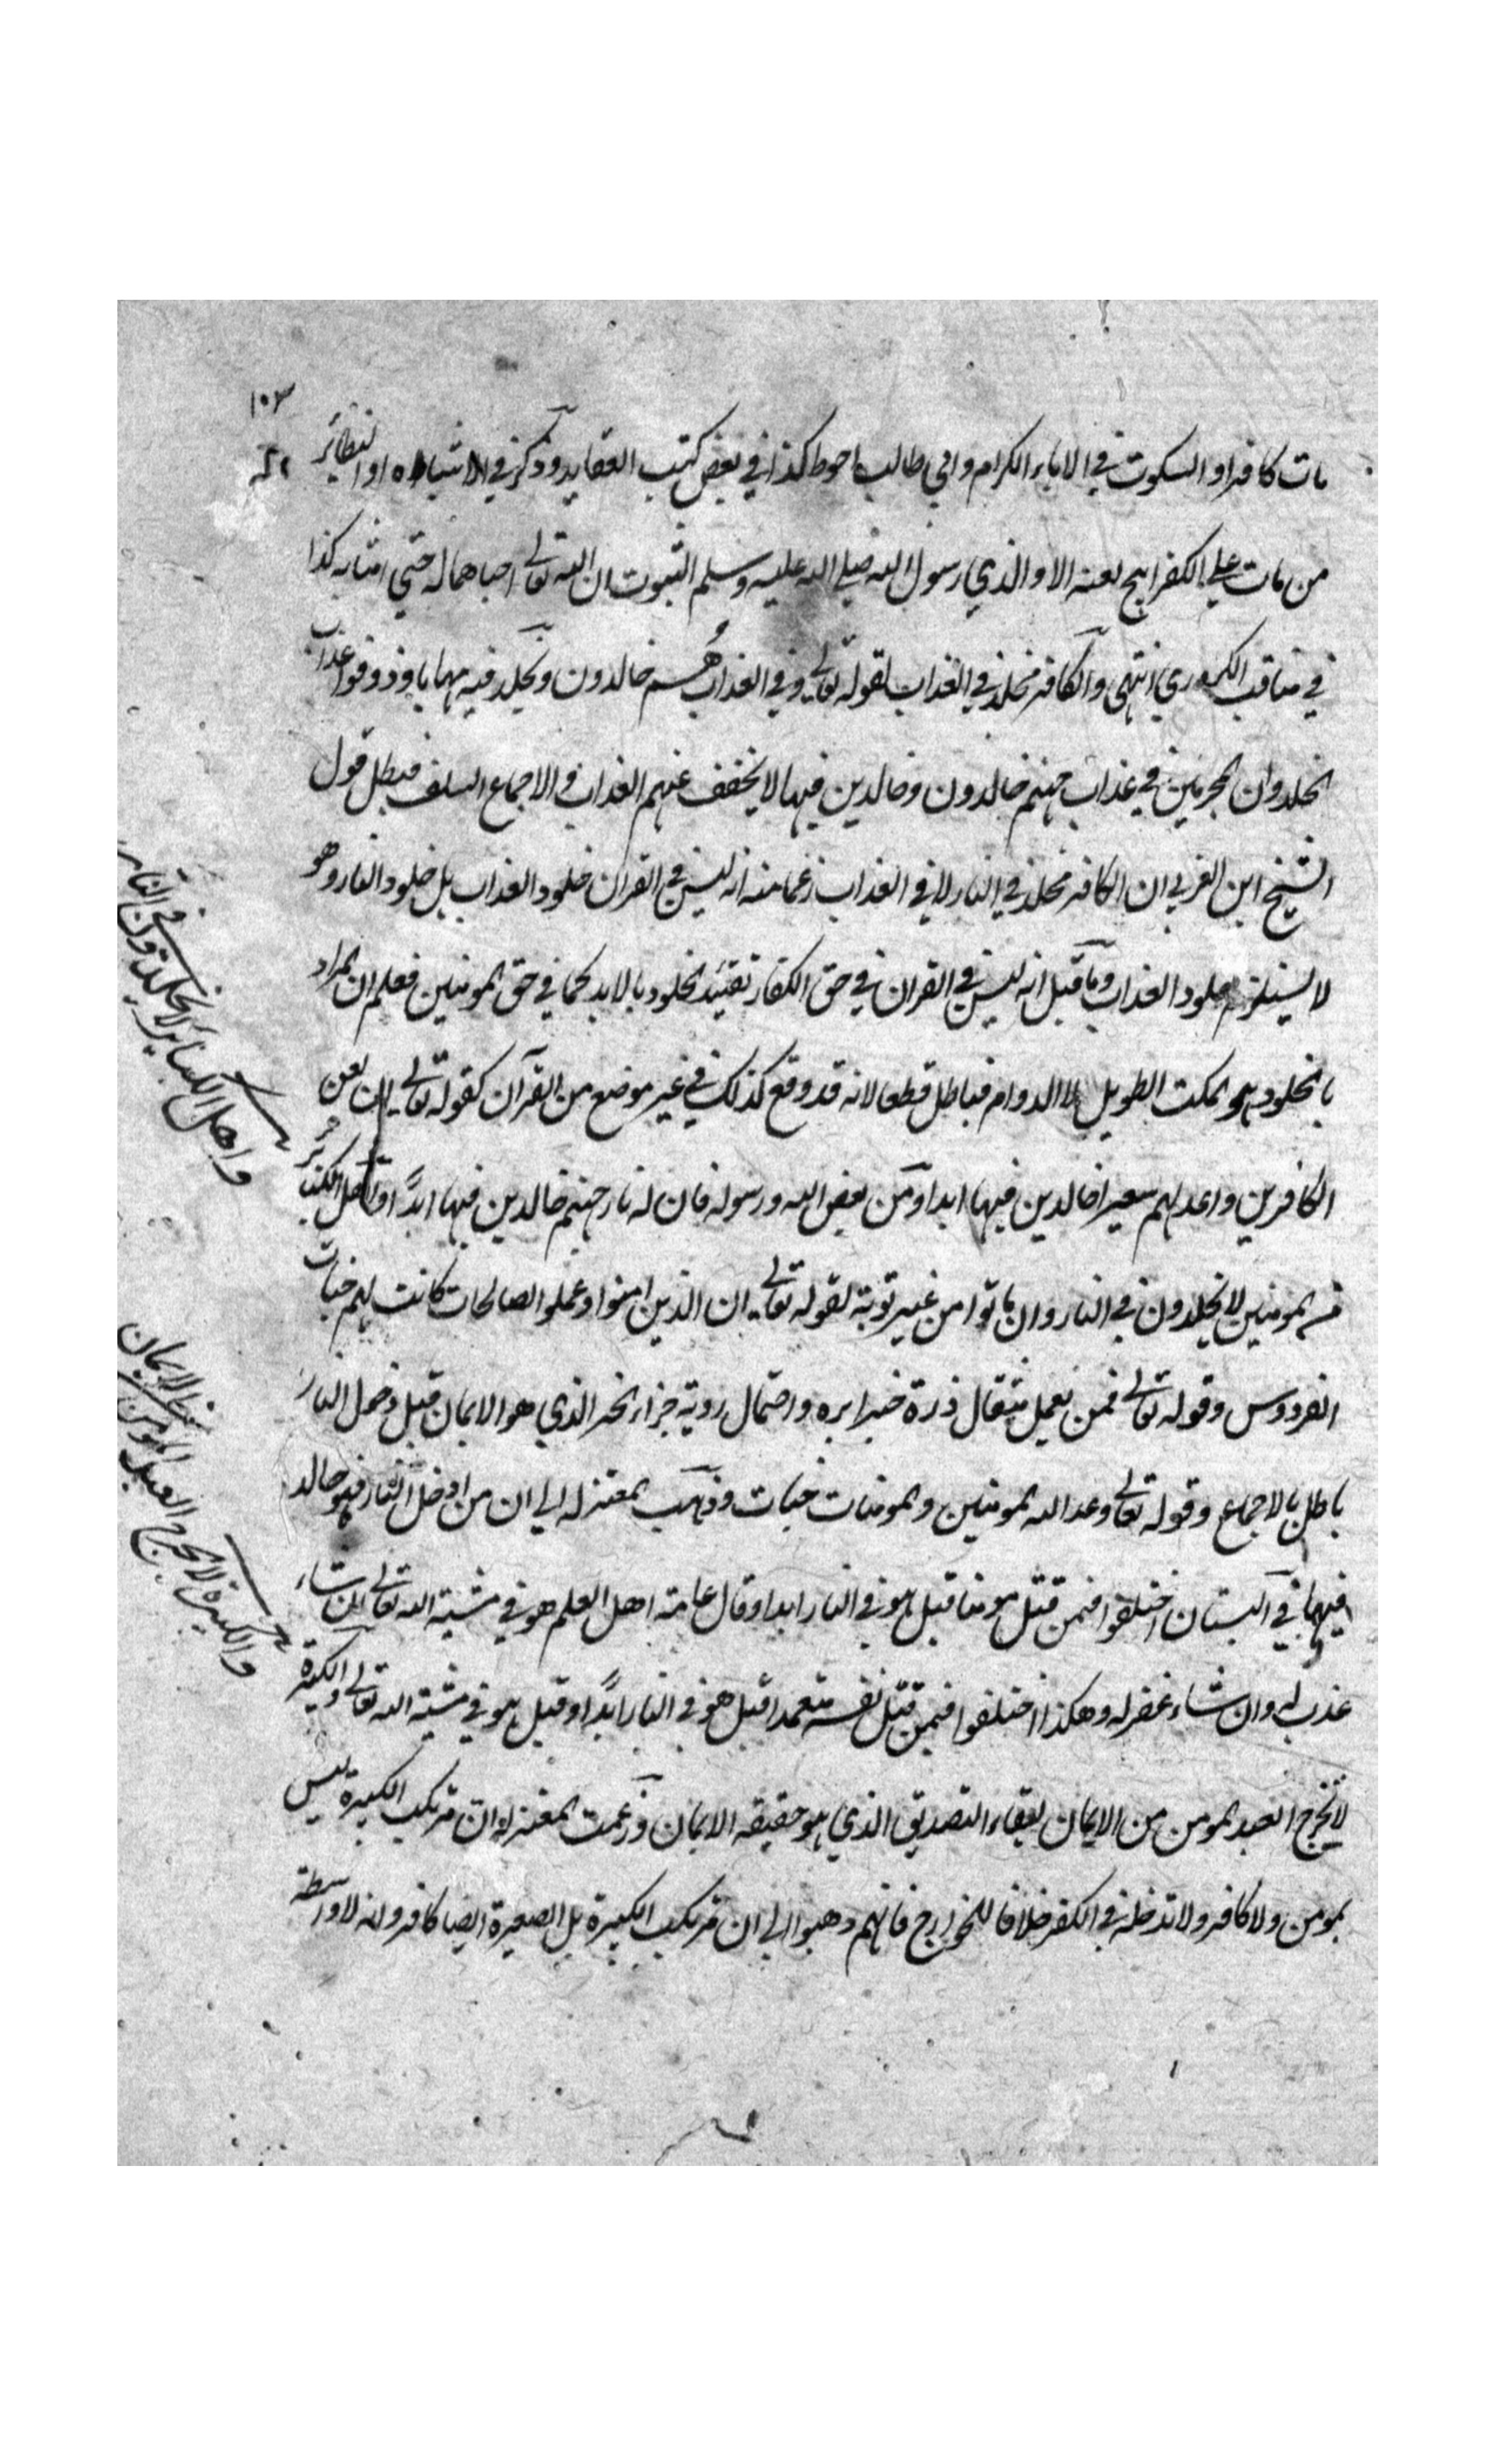 ١٠٣
مات كافرا والسكوت في الاباء الكرام وابي طالب احوط كذا في بعض كتب العقايد وذكر في الاشباه والنظائر
من مات علي الكفر ابيح لعنه الا والذي رسول الله صلي الله عليه وسلم لثبوت ان الله تعالي احياهما له حتي امنا به كذا
في مناقب الكردري انتهي والكافر مخلد في العذاب لقوله تعالي وفي العذاب هم خالدون ويخلد فيه مهانا وذوقوا عذاب
الخلد وان المجرمين في عذاب جهنم خالدون وخالدين فيها لا يخفف عنهم العذاب والاجماع السلف فبطل قول
الشيخ ابن العربي ان الكافر مخلد في النار لا في العذاب زعما منه انه ليس في القران خلود العذاب بل خلود النار وهو
لا يستلزم خلود العذاب وما قيل انه ليس في القران في حق الكفار تقييد الخلود بالابد كما في حق المومنين فعلم ان المراد
بالخلود هو المكث الطويل لا الدوام فباطل قطعا لانه قد وقع كذلك في غير موضع من القرآن كقوله تعالي ان لعن
الكافرين واعد لهم سعيرا خالدين فيها ابدا ومن يعص الله ورسوله فان له نار جهنم خالدين فيها ابدا واهل الكبائر
من المومنين لا يخلدون في النار وان ماتوا من غير توبة لقوله تعالي ان الذين امنوا وعملوا الصالحات كانت لهم جنات
الفردوس وقوله تعالي فمن يعمل مثقال ذرة خيرا يره واحتمال روية جزاء الخير الذي هو الايمان قبل دخول النار
باطل بالاجماع وقوله تعالي وعد الله المومنين والمومنات جنات وذهب المعتزله الي ان من ادخل النار فهو خالد
فيها في البستان اختلفوا فيمن قتل مومنا قيل هو في النار ابدا وقال عامة اهل العلم هو في مشية الله تعالي ان شاء
عذب له وان شاء غفر له وهكذا اختلفوا فيمن قتل نفسه متعمدا قيل هو في النار ابدا وقيل هو في مشية الله تعالي والكبيرة
لا تخرج العبد المومن من الايمان لبقاء التصديق الذي هو حقيقه الايمان وزعمت المعتزله ان مرتكب الكبيرة ليس
بمومن ولا كافر ولا تدخله في الكفر خلافا للخوارج فانهم ذهبوا الي ان مرتكب الكبيرة بل الصغيرة ايضا كافر وانه لا واسطة
واهل الكبائر لا يخلدون في النار
والكبيرة لا تخرج العبد المومن من الايمان